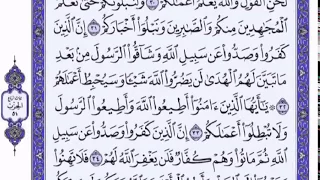 لَحْنِ ٱلْقَوْلِ وَٱللَّهُ يَعْلَمُ أَعْمَٰلَكُمْ ٣٠ وَلَنَبْلُوَنَّكُمْ حَتَّىٰ نَعْلَمَ
ٱلْمُجَٰهِدِينَ مِنكُمْ وَٱلصَّٰبِرِينَ وَنَبْلُوَا۟ أَخْبَارَكُمْ ٣١ إِنَّ ٱلَّذِينَ
كَفَرُوا۟ وَصَدُّوا۟ عَن سَبِيلِ ٱللَّهِ وَشَآقُّوا۟ ٱلرَّسُولَ مِنۢ بَعْدِ
مَا تَبَيَّنَ لَهُمُ ٱلْهُدَىٰ لَن يَضُرُّوا۟ ٱللَّهَ شَيْـًٔا وَسَيُحْبِطُ أَعْمَٰلَهُمْ
٣٢ يَٰٓأَيُّهَا ٱلَّذِينَ ءَامَنُوٓا۟ أَطِيعُوا۟ ٱللَّهَ وَأَطِيعُوا۟ ٱلرَّسُولَ
وَلَا تُبْطِلُوٓا۟ أَعْمَٰلَكُمْ ٣٣ إِنَّ ٱلَّذِينَ كَفَرُوا۟ وَصَدُّوا۟ عَن سَبِيلِ
ٱللَّهِ ثُمَّ مَاتُوا۟ وَهُمْ كُفَّارٌ فَلَن يَغْفِرَ ٱللَّهُ لَهُمْ ٣٤ فَلَا تَهِنُوا۟